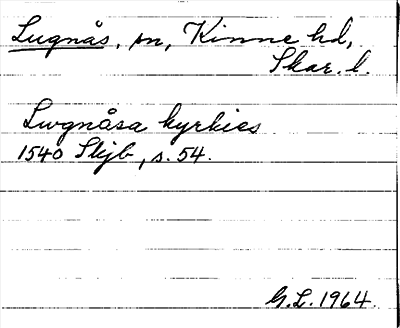 Lugnås, sn, Kinne hd,
Skar. l.
Lwgnåsa kyrkies
1540 Skjb, s. 54.
G.L. 1964.